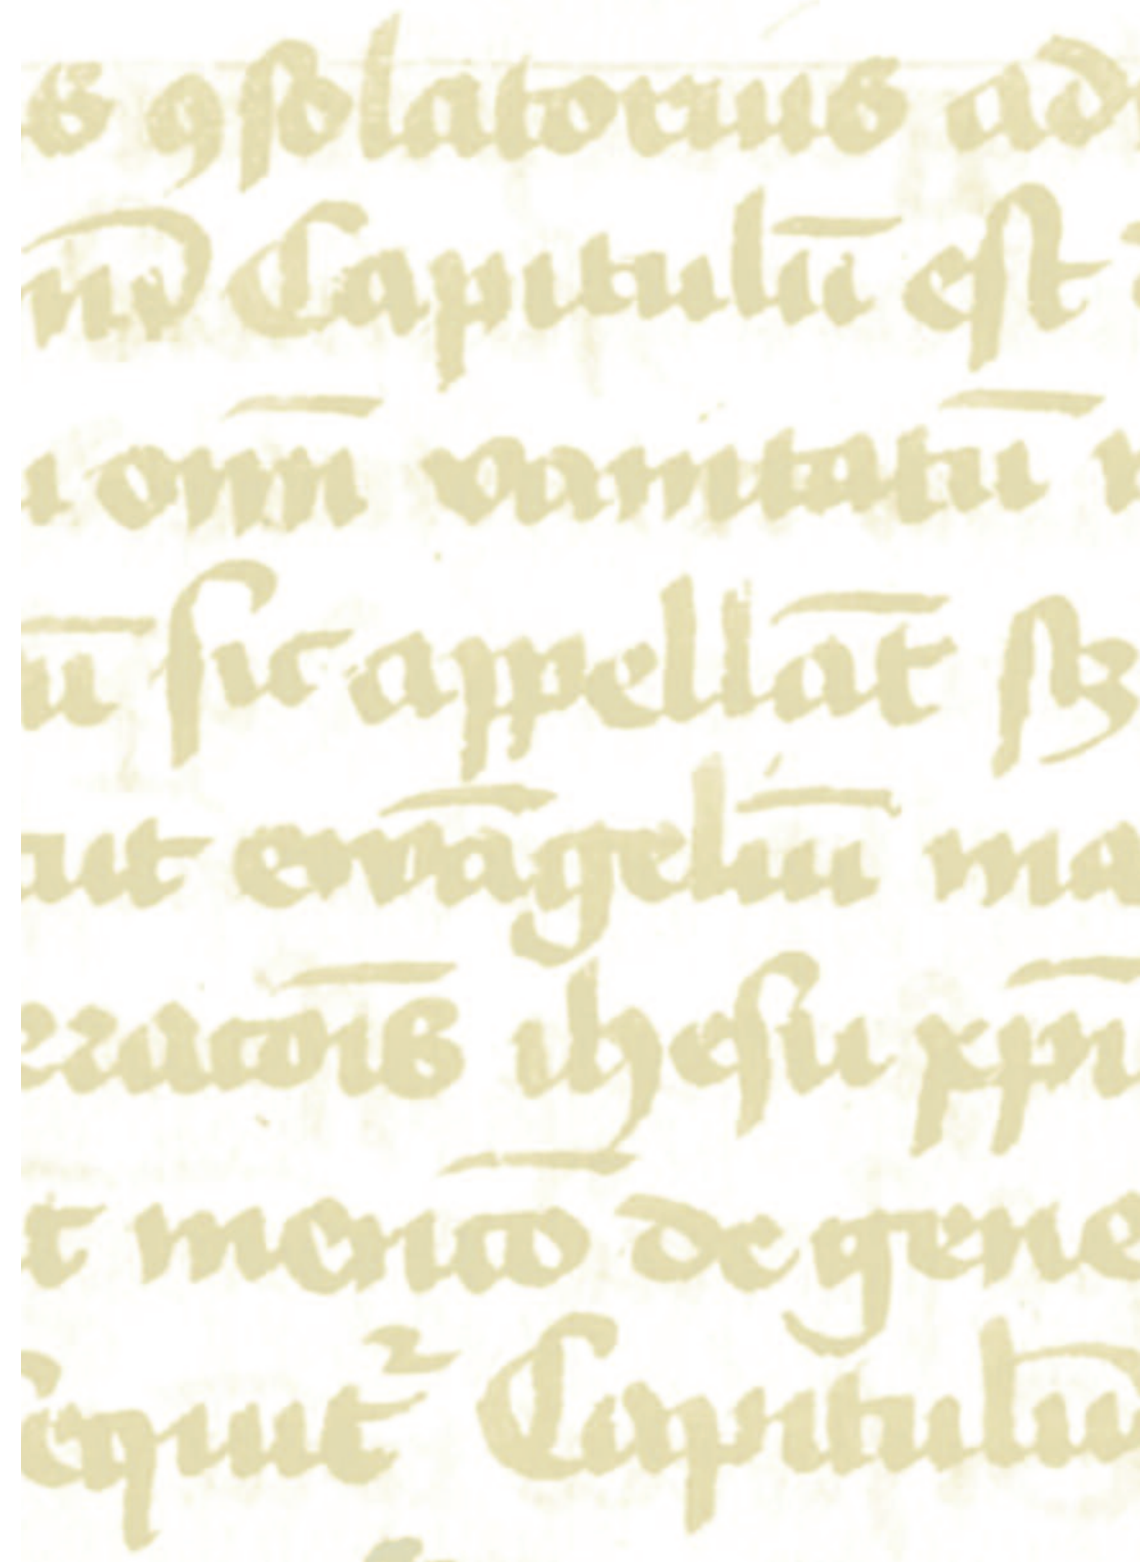 s ꝯſolatorius ad
nd Capitulū eſt
i om̄i vanitatū
ū ſic appellāt ſꝫ
aut ewāgeliū ma
eratōis iheſu xp̄i
t mentō de gene
equitᷣ Capitulū